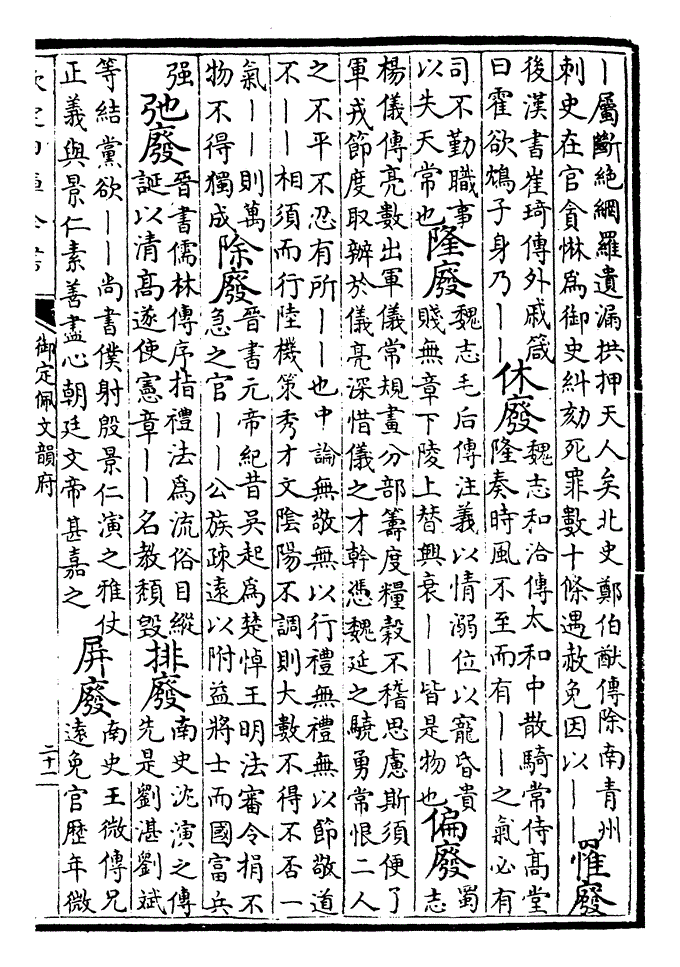 丨屬斷絶網羅遺漏拱押天人矣北史鄭伯猷傳除南青州
刺史在官貪惏爲御史糾劾死罪數十條遇赦免因以丨丨
罹廢
後漢書崔琦傳外戚箴
曰霍欲鴆子身乃丨丨
休廢
魏志和洽傳太和中散騎常侍髙堂
隆奏時風不至而有丨丨之氣必有
司不勤職事
以失天常也
隆廢
魏志毛后傳注義以情溺位以寵昏貴
賤無章下陵上替興衰丨丨皆是物也
偏廢
蜀
志
楊儀傳亮數出軍儀常規畫分部籌度糧穀不稽思慮斯須便了
軍戎節度取辦於儀亮深惜儀之才幹憑魏延之驍勇常恨二人
之不平不忍有所丨丨也中論無敬無以行禮無禮無以節敬道
不丨丨相須而行陸機策秀才文陰陽不調則大數不得不否一
氣丨丨則萬
物不得獨成
除廢
晉書元帝紀昔吳起爲楚悼王明法審令捐不
急之官丨丨公族疎遠以附益將士而國富兵
强
弛廢
晉書儒林傳序指禮法爲流俗目縱
誕以清髙遂使憲章丨丨名教頽毁
排廢
南史沈演之傳
先是劉湛劉斌
等結黨欲丨丨尚書僕射殷景仁演之雅仗
正義與景仁素善盡心朝廷文帝甚嘉之
屏廢
南史王微傳兄
遠免官歴年微
欽定四庫全書
御定佩文韻府
二十一